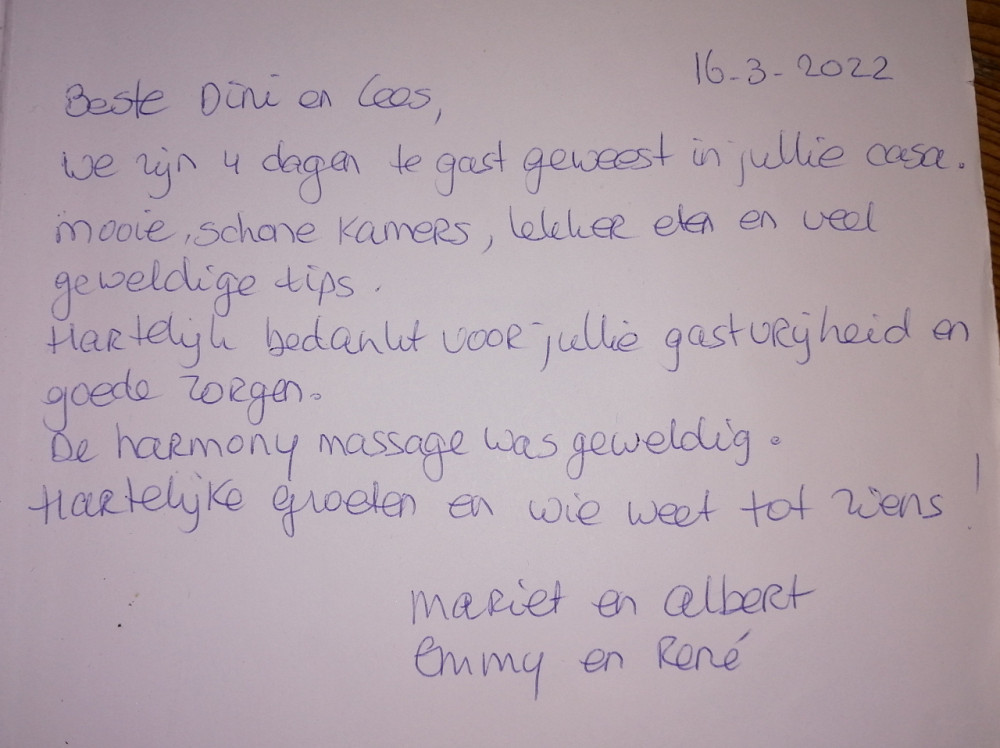 16-3-2022
Beste Dini en Cees,
we zijn 4 dagen te gast geweest in jullie casa.
mooie, schone kamers, lekker eten en veel
geweldige tips.
Hartelijk bedankt voor jullie gastvrijheid en
goede zorgen.
De harmony massage was geweldig.
Hartelijke groeten en wie weet tot ziens!
Mariet en Albert
Emmy en René